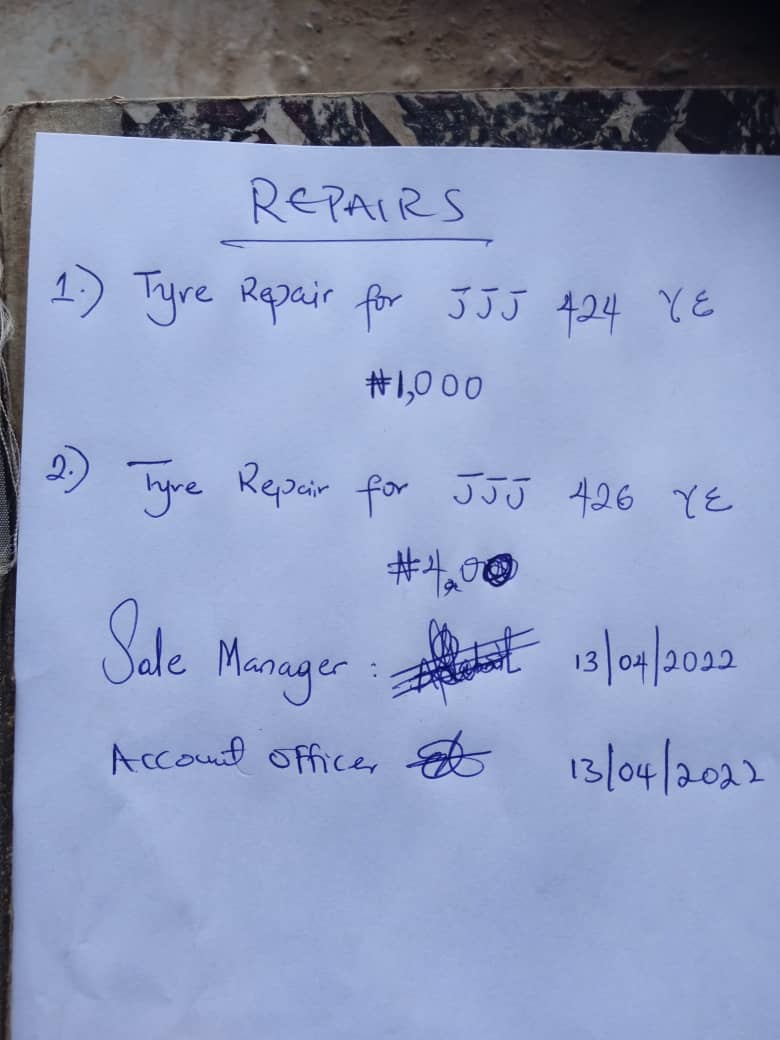 REPAIRS
1.) Tyre Repair for JJJ 424 YE
₦1,000
2.) Tyre Repair for JJJ 426 YE
Sale Manager : 13/04/2022
Account officer 13/04/2022